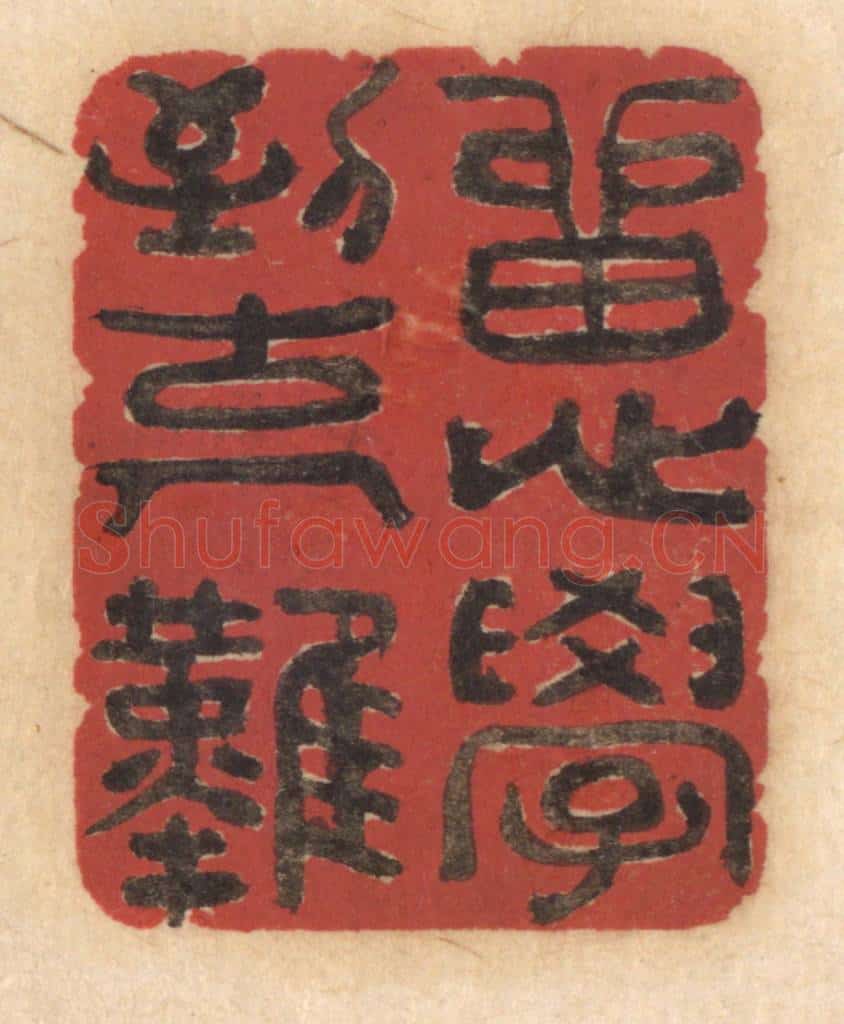 留此學
到難
Shufawang.CN